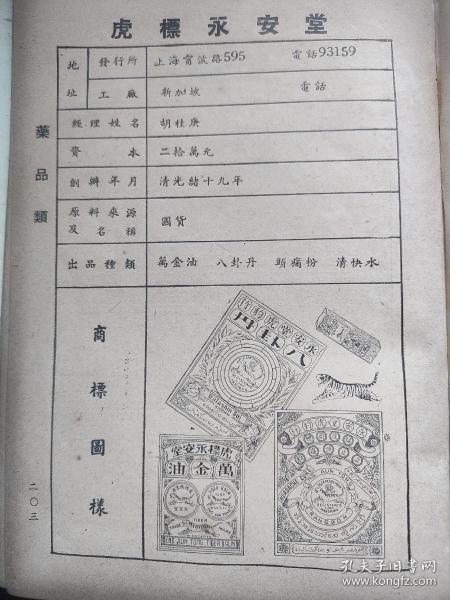 虎標永安堂
地址 發行所 上海寗波路595 電話93159
工廠 新加坡 電話
經理姓名 胡桂庚
資本 二拾萬元
創辦年月 清光緒十九年
原料來源及名稱 國貨
出品種類 萬金油 八卦丹 頭痛粉 清快水
商標圖樣
永安堂虎豹行
八卦丹
虎標永安堂
萬金油
TIGER
藥品類
二〇三
孔夫子旧书网